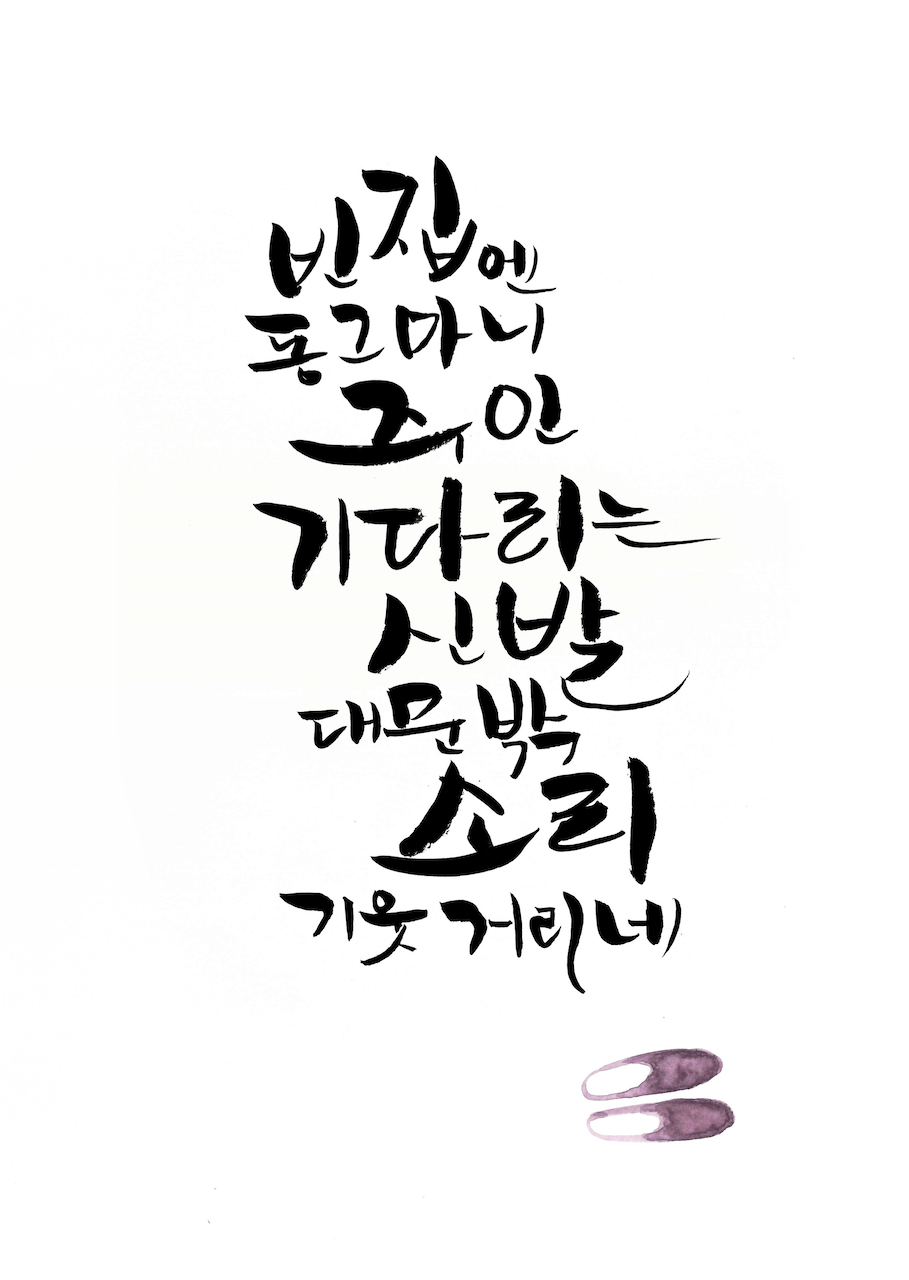 빈집엔
동그마니
주인
기다리는
신발
대문밖
소리
기웃거리네